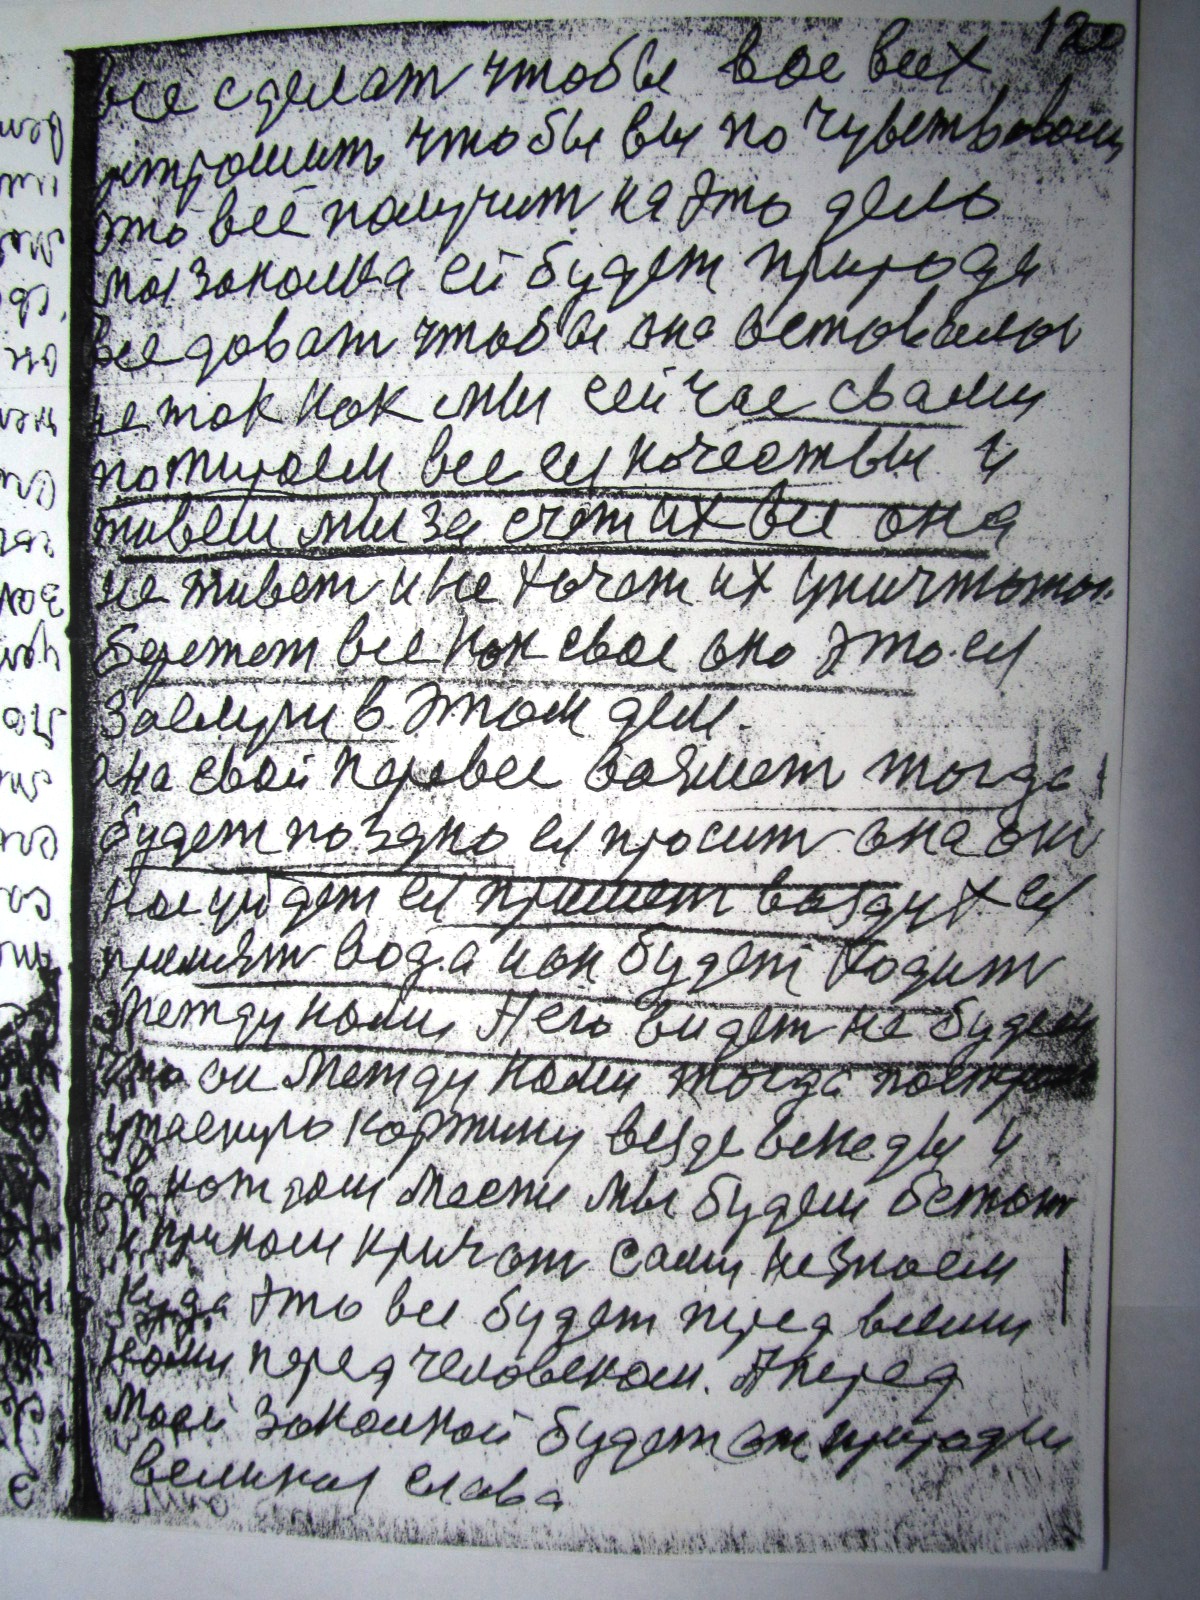 120
все сделат чтобы вас всех
устрошит чтобы вы по чувствовали
это всё получит на это дело
моя законька ей будет природа
все доват чтобы она оставалос
не так как мы сейчас свами
пожираем все ея качествы и
живем мы за счет их все она
не живет и не хочет их уничтожат
бережет все как свое оно это ея
заслуги в этом деле.
она свой перевес возмет тогда
будет поздно ея просит она он
нас уйдет ея примет воздух ея
премят вода и он будет ходит
между нами Него видет не будем
что он между нами тогда
ужасную картину везде всюды и
на кождом месте мы будем бежат
и криком кричат сами незнаем
куда это все будет перед всеми
нами перед человеком. А перед
моей законкой будет от природы
великая слава